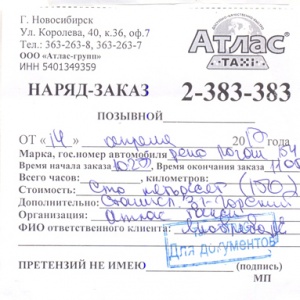 Г. Новосибирск
Ул. Королева, 40, к.36, оф.7
Тел.: 363-263-8, 363-263-7
ООО «Атлас-групп»
ИНН 5401349359
Атлас
TAXI
НАРЯД-ЗАКАЗ 2-383-383
ПОЗЫВНОЙ
ОТ «14» апреля 20
Марка, гос.номер автомобиля Рено Логан
Время начала заказа Время окончания заказа
Всего часов: , километров:
Стоимость: Сто пятьдесят (150)
Дополнительно:
Организация: Атлас такси
ФИО ответственного клиента:
Для документов
ПРЕТЕНЗИЙ НЕ ИМЕЮ (подпись)
МП